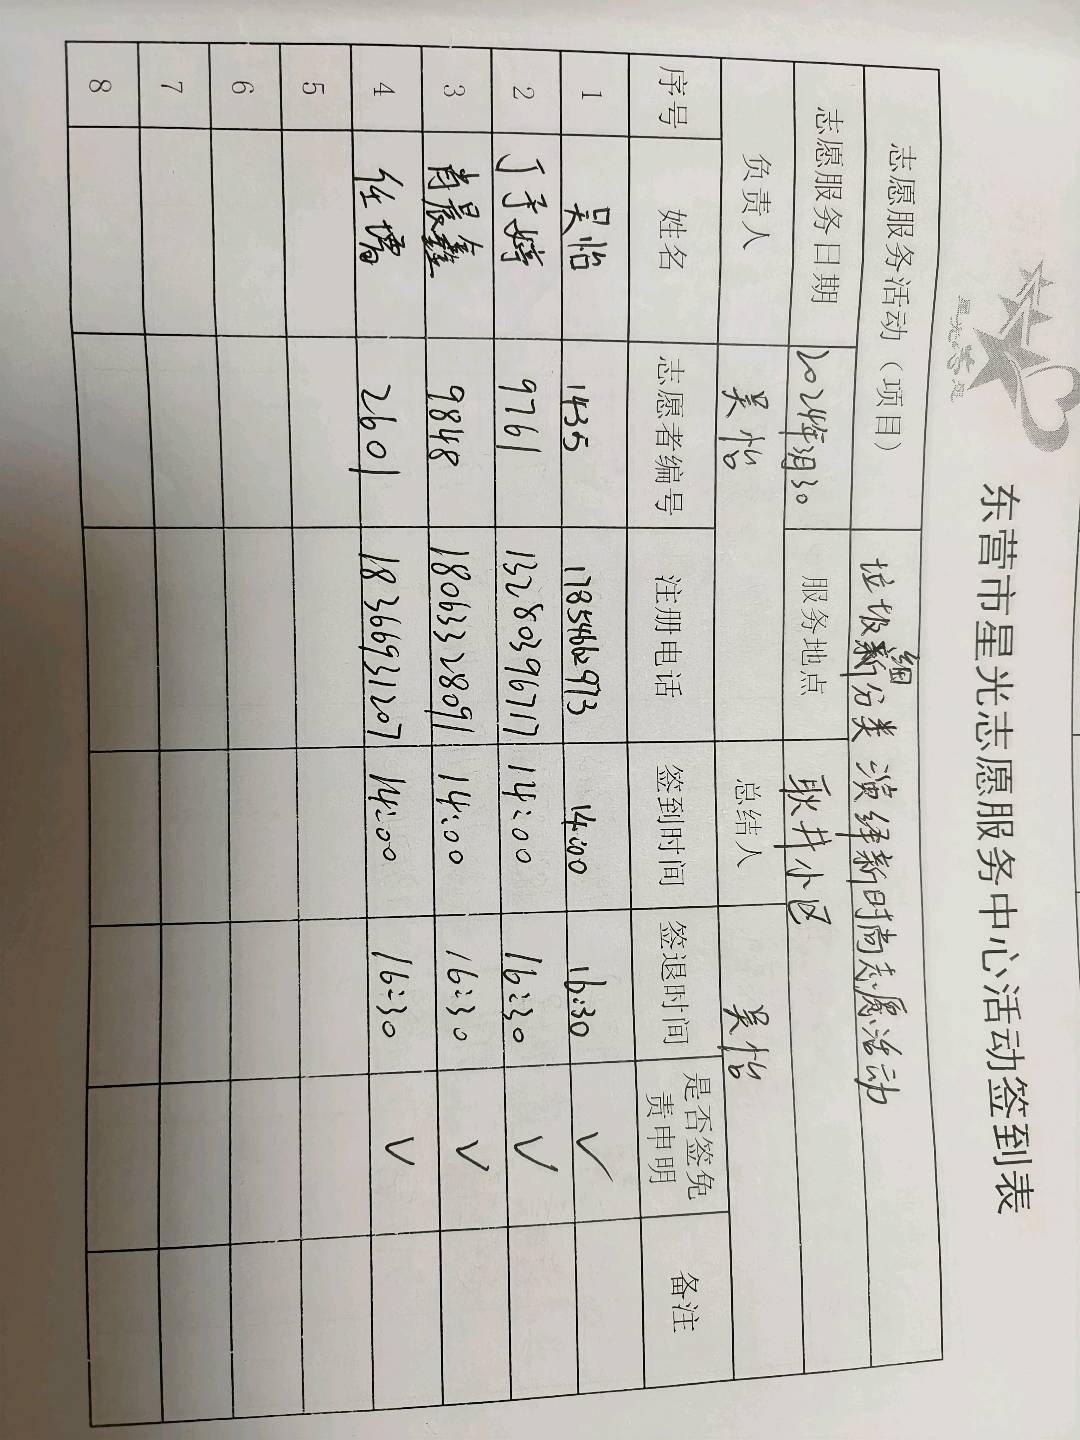 星光志愿
东营市星光志愿服务中心活动签到表
志愿服务活动（项目） 垃圾细分类 演绎新时尚志愿活动
志愿服务日期 2024年 月30 服务地点 耿井小区
负责人 吴怡 总结人 吴怡
序号 姓名 志愿者编号 注册电话 签到时间 签退时间 是否签免责申明 备注
1 吴怡 1435 17854662973 14:00 16:30 ✓
2 丁予婷 9761 13280396717 14:00 16:30 ✓
3 肖晨鑫 9848 18063328091 14:00 16:30 ✓
4 任增 2601 18366931207 14:00 16:30 ✓
5
6
7
8